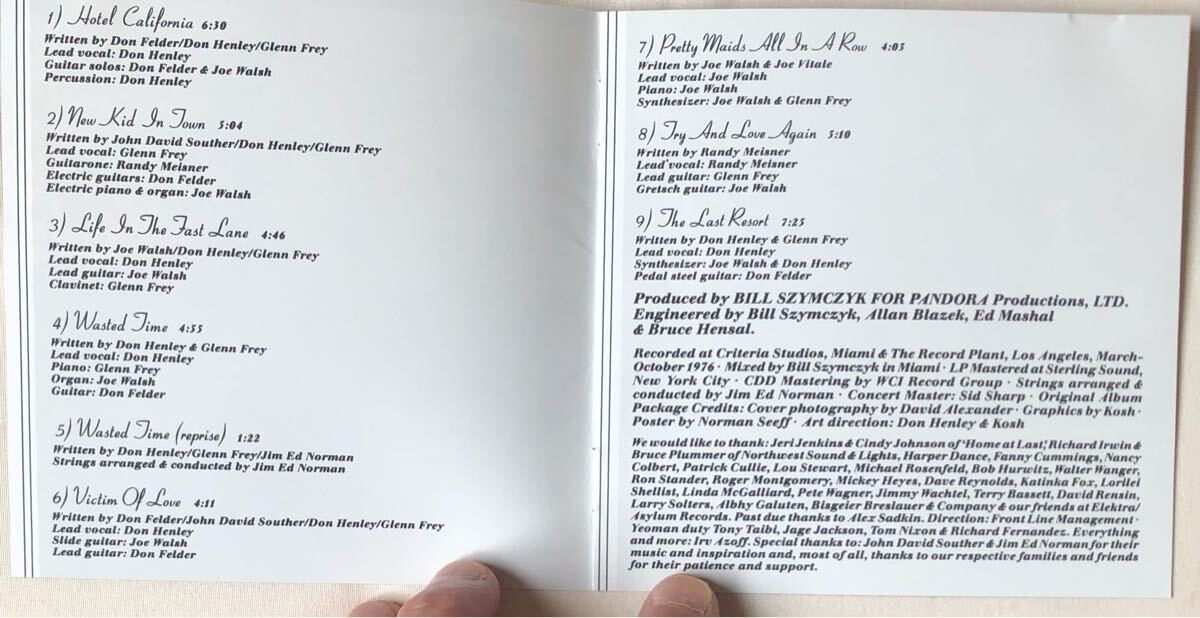 1) Hotel California 6:30
Written by Don Felder/Don Henley/Glenn Frey
Lead vocal: Don Henley
Guitar solos: Don Felder & Joe Walsh
Percussion: Don Henley
2) New Kid In Town 5:04
Written by John David Souther/Don Henley/Glenn Frey
Lead vocal: Glenn Frey
Guitarone: Randy Meisner
Electric guitars: Don Felder
Electric piano & organ: Joe Walsh
3) Life In The Fast Lane 4:46
Written by Joe Walsh/Don Henley/Glenn Frey
Lead vocal: Don Henley
Lead guitar: Joe Walsh
Clavinet: Glenn Frey
4) Wasted Time 4:55
Written by Don Henley & Glenn Frey
Lead vocal: Don Henley
Piano: Glenn Frey
Organ: Joe Walsh
Guitar: Don Felder
5) Wasted Time (reprise) 1:22
Written by Don Henley/Glenn Frey/Jim Ed Norman
Strings arranged & conducted by Jim Ed Norman
6) Victim Of Love 4:11
Written by Don Felder/John David Souther/Don Henley/Glenn Frey
Lead vocal: Don Henley
Slide guitar: Joe Walsh
Lead guitar: Don Felder
7) Pretty Maids All In A Row 4:05
Written by Joe Walsh & Joe Vitale
Lead vocal: Joe Walsh
Piano: Joe Walsh
Synthesizer: Joe Walsh & Glenn Frey
8) Try And Love Again 5:10
Written by Randy Meisner
Lead vocal: Randy Meisner
Lead guitar: Glenn Frey
Gretsch guitar: Joe Walsh
9) The Last Resort 7:25
Written by Don Henley & Glenn Frey
Lead vocal: Don Henley
Synthesizer: Joe Walsh & Don Henley
Pedal steel guitar: Don Felder
Produced by BILL SZYMCZYK FOR PANDORA Productions, LTD.
Engineered by Bill Szymczyk, Allan Blazek, Ed Mashal
& Bruce Hensal.
Recorded at Criteria Studios, Miami & The Record Plant, Los Angeles, March-
October 1976 · Mixed by Bill Szymczyk in Miami · LP Mastered at Sterling Sound,
New York City · CDD Mastering by WCI Record Group · Strings arranged &
conducted by Jim Ed Norman · Concert Master: Sid Sharp · Original Album
Package Credits: Cover photography by David Alexander · Graphics by Kosh ·
Poster by Norman Seeff · Art direction: Don Henley & Kosh
We would like to thank: Jeri Jenkins & Cindy Johnson of 'Home at Last,' Richard Irwin &
Bruce Plummer of Northwest Sound & Lights, Harper Dance, Fanny Cummings, Nancy
Colbert, Patrick Cullie, Lou Stewart, Michael Rosenfeld, Bob Hurwitz, Walter Wanger,
Ron Stander, Roger Montgomery, Mickey Heyes, Dave Reynolds, Katinka Fox, Lorilei
Shellist, Linda McGalliard, Pete Wagner, Jimmy Wachtel, Terry Bassett, David Rensin,
Larry Solters, Albhy Galuten, Bisgeier Breslauer & Company & our friends at Elektra/
Asylum Records. Past due thanks to Alex Sadkin. Direction: Front Line Management ·
Yeoman duty Tony Taibi, Jage Jackson, Tom Nixon & Richard Fernandez. Everything
and more: Irv Azoff. Special thanks to: John David Souther & Jim Ed Norman for their
music and inspiration and, most of all, thanks to our respective families and friends
for their patience and support.